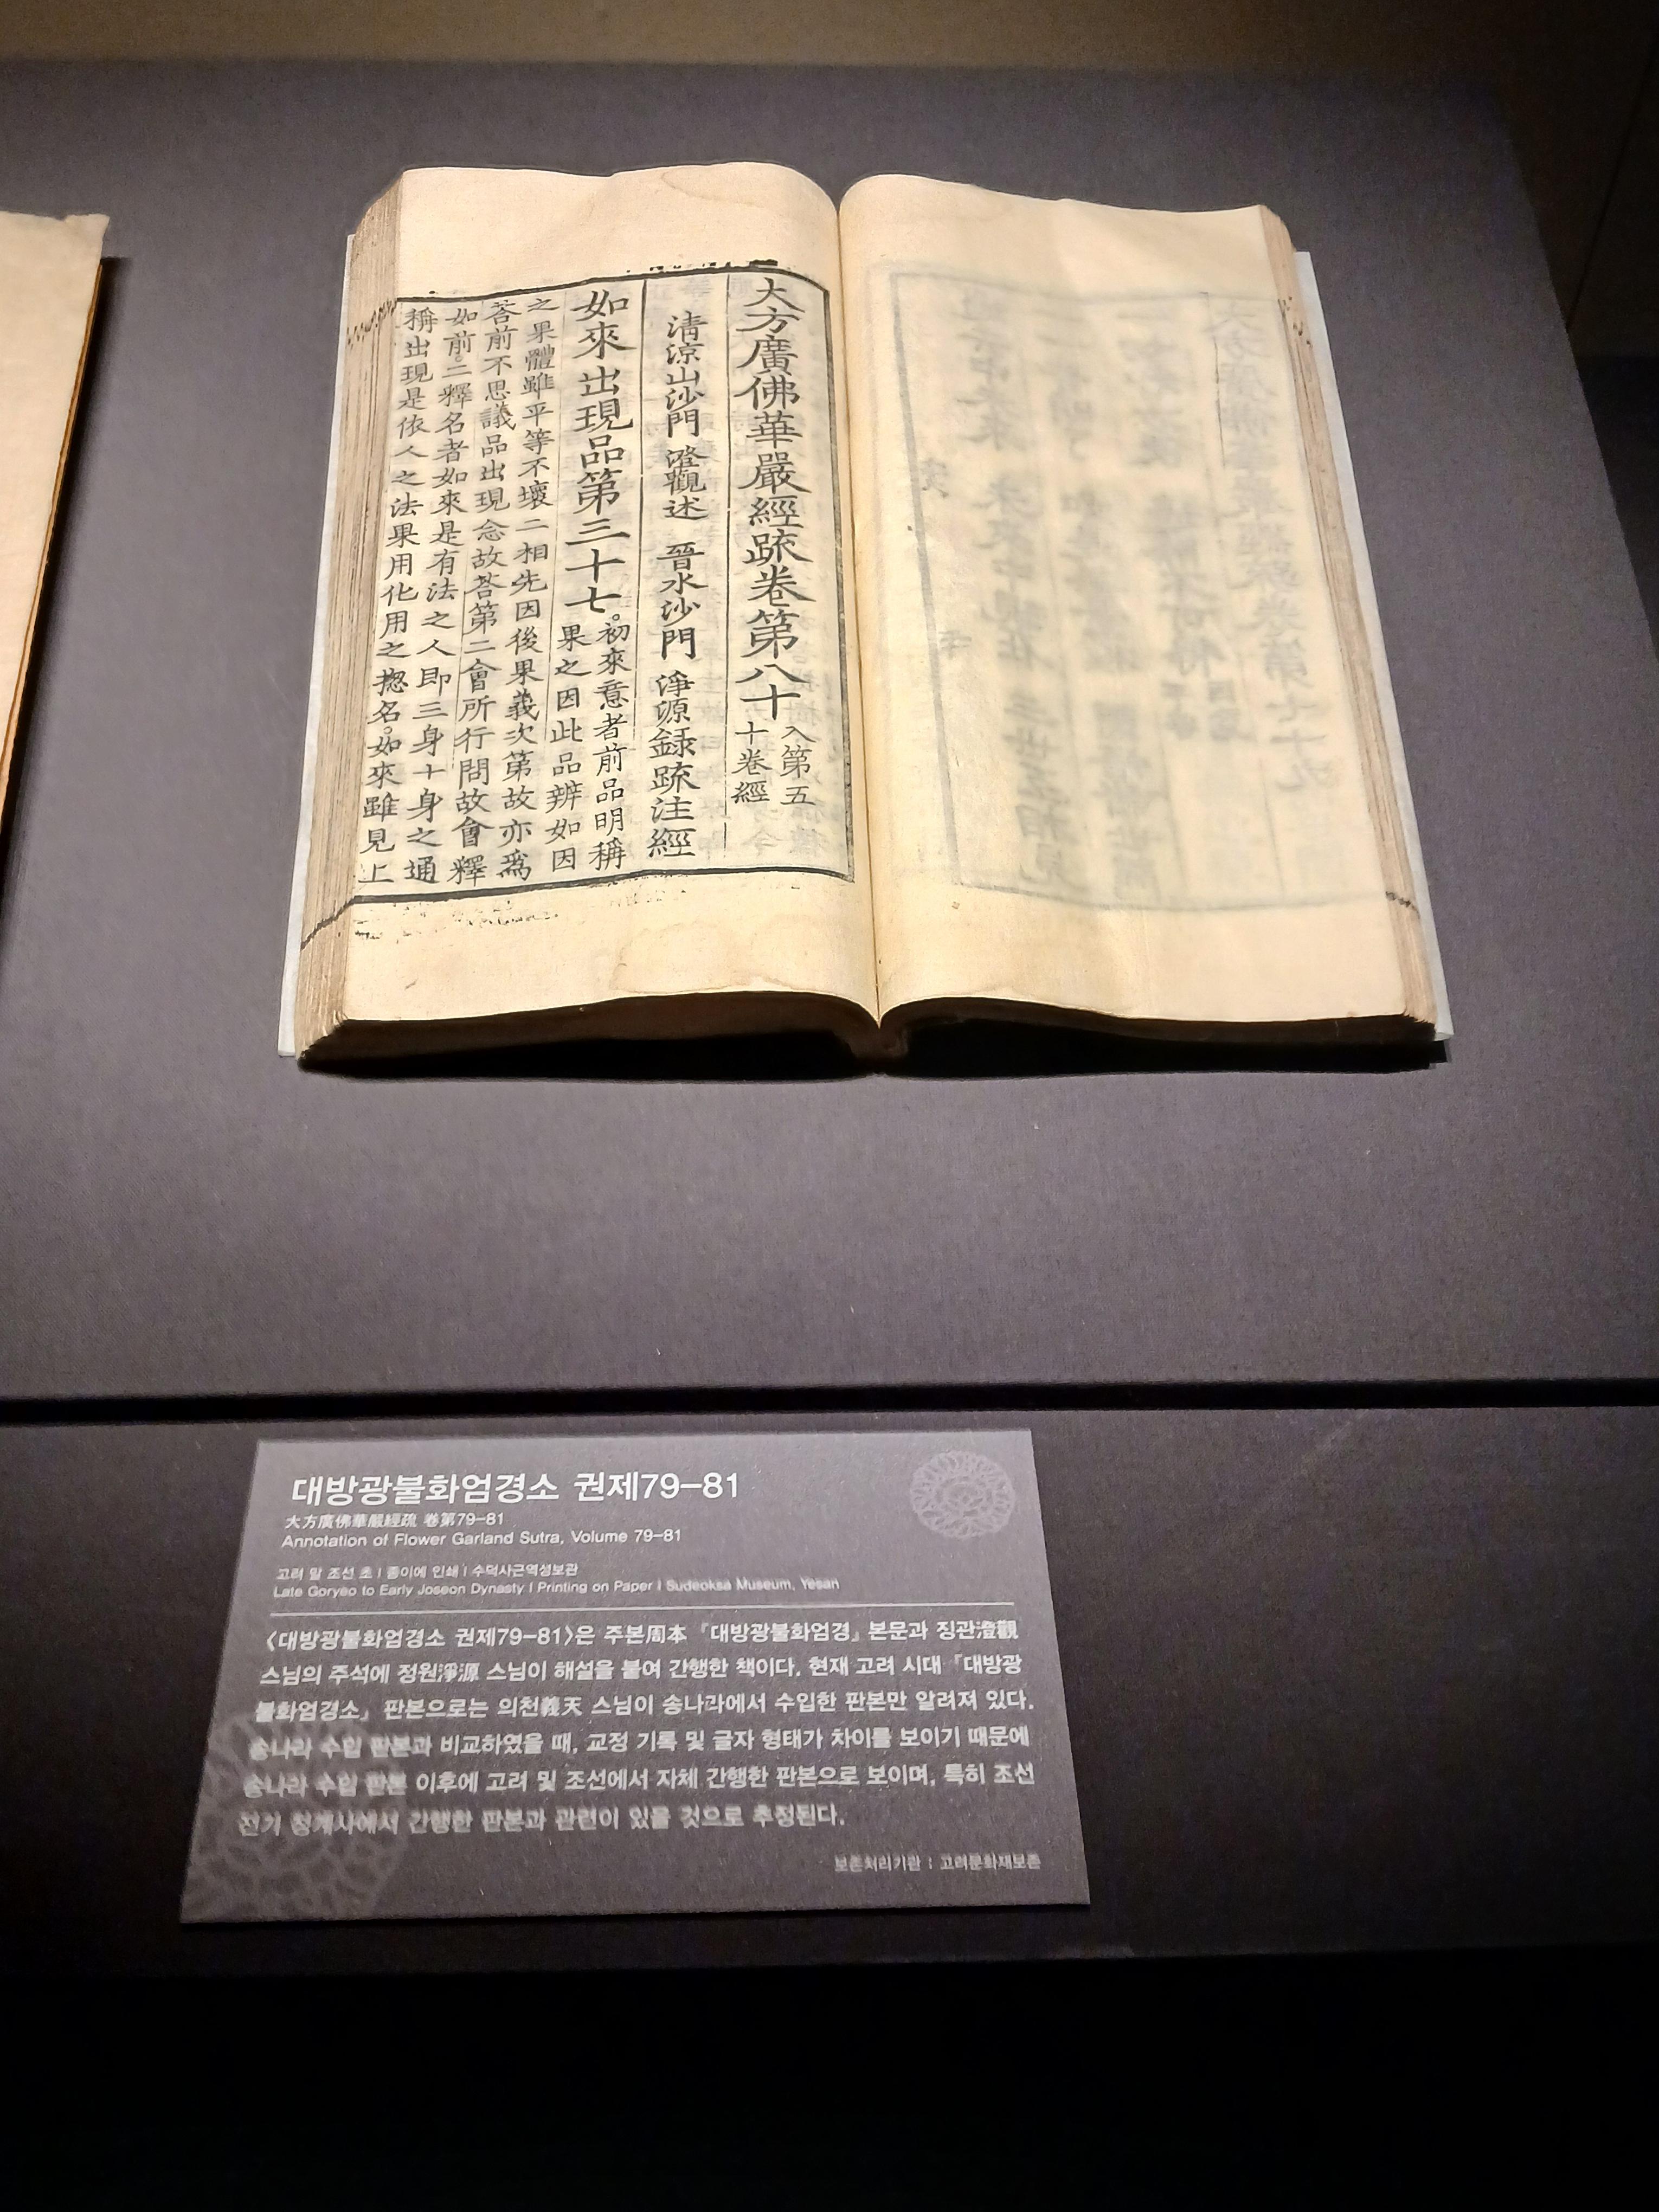 大方廣佛華嚴經䟽卷第八十 入第五
十卷經
清涼山沙門 澄觀述 晉水沙門 淨源録䟽注經
如來出現品第三十七。初來意者前品明稱
果之因此品辨如因
之果體雖平等不壞二相先因後果義次第故亦爲
荅前不思議品出現念故荅第二會所行問故會釋
如前。二釋名者如來是有法之人即三身十身之通
稱出現是依人之法果用化用之揔名。如來雖見上
대방광불화엄경소 권제79-81
大方廣佛華嚴經疏 卷第79-81
Annotation of Flower Garland Sutra, Volume 79-81
고려 말 조선 초 | 종이에 인쇄 | 수덕사근역성보관
Late Goryeo to Early Joseon Dynasty | Printing on Paper | Sudeoksa Museum, Yesan
〈대방광불화엄경소 권제79-81〉은 주본周本 『대방광불화엄경』 본문과 징관澄觀
스님의 주석에 정원淨源 스님이 해설을 붙여 간행한 책이다. 현재 고려 시대 『대방광
불화엄경소』 판본으로는 의천義天 스님이 송나라에서 수입한 판본만 알려져 있다.
송나라 수입 판본과 비교하였을 때, 교정 기록 및 글자 형태가 차이를 보이기 때문에
송나라 수입 판본 이후에 고려 및 조선에서 자체 간행한 판본으로 보이며, 특히 조선
전기 청계사에서 간행한 판본과 관련이 있을 것으로 추정된다.
보존처리기관 : 고려문화재보존